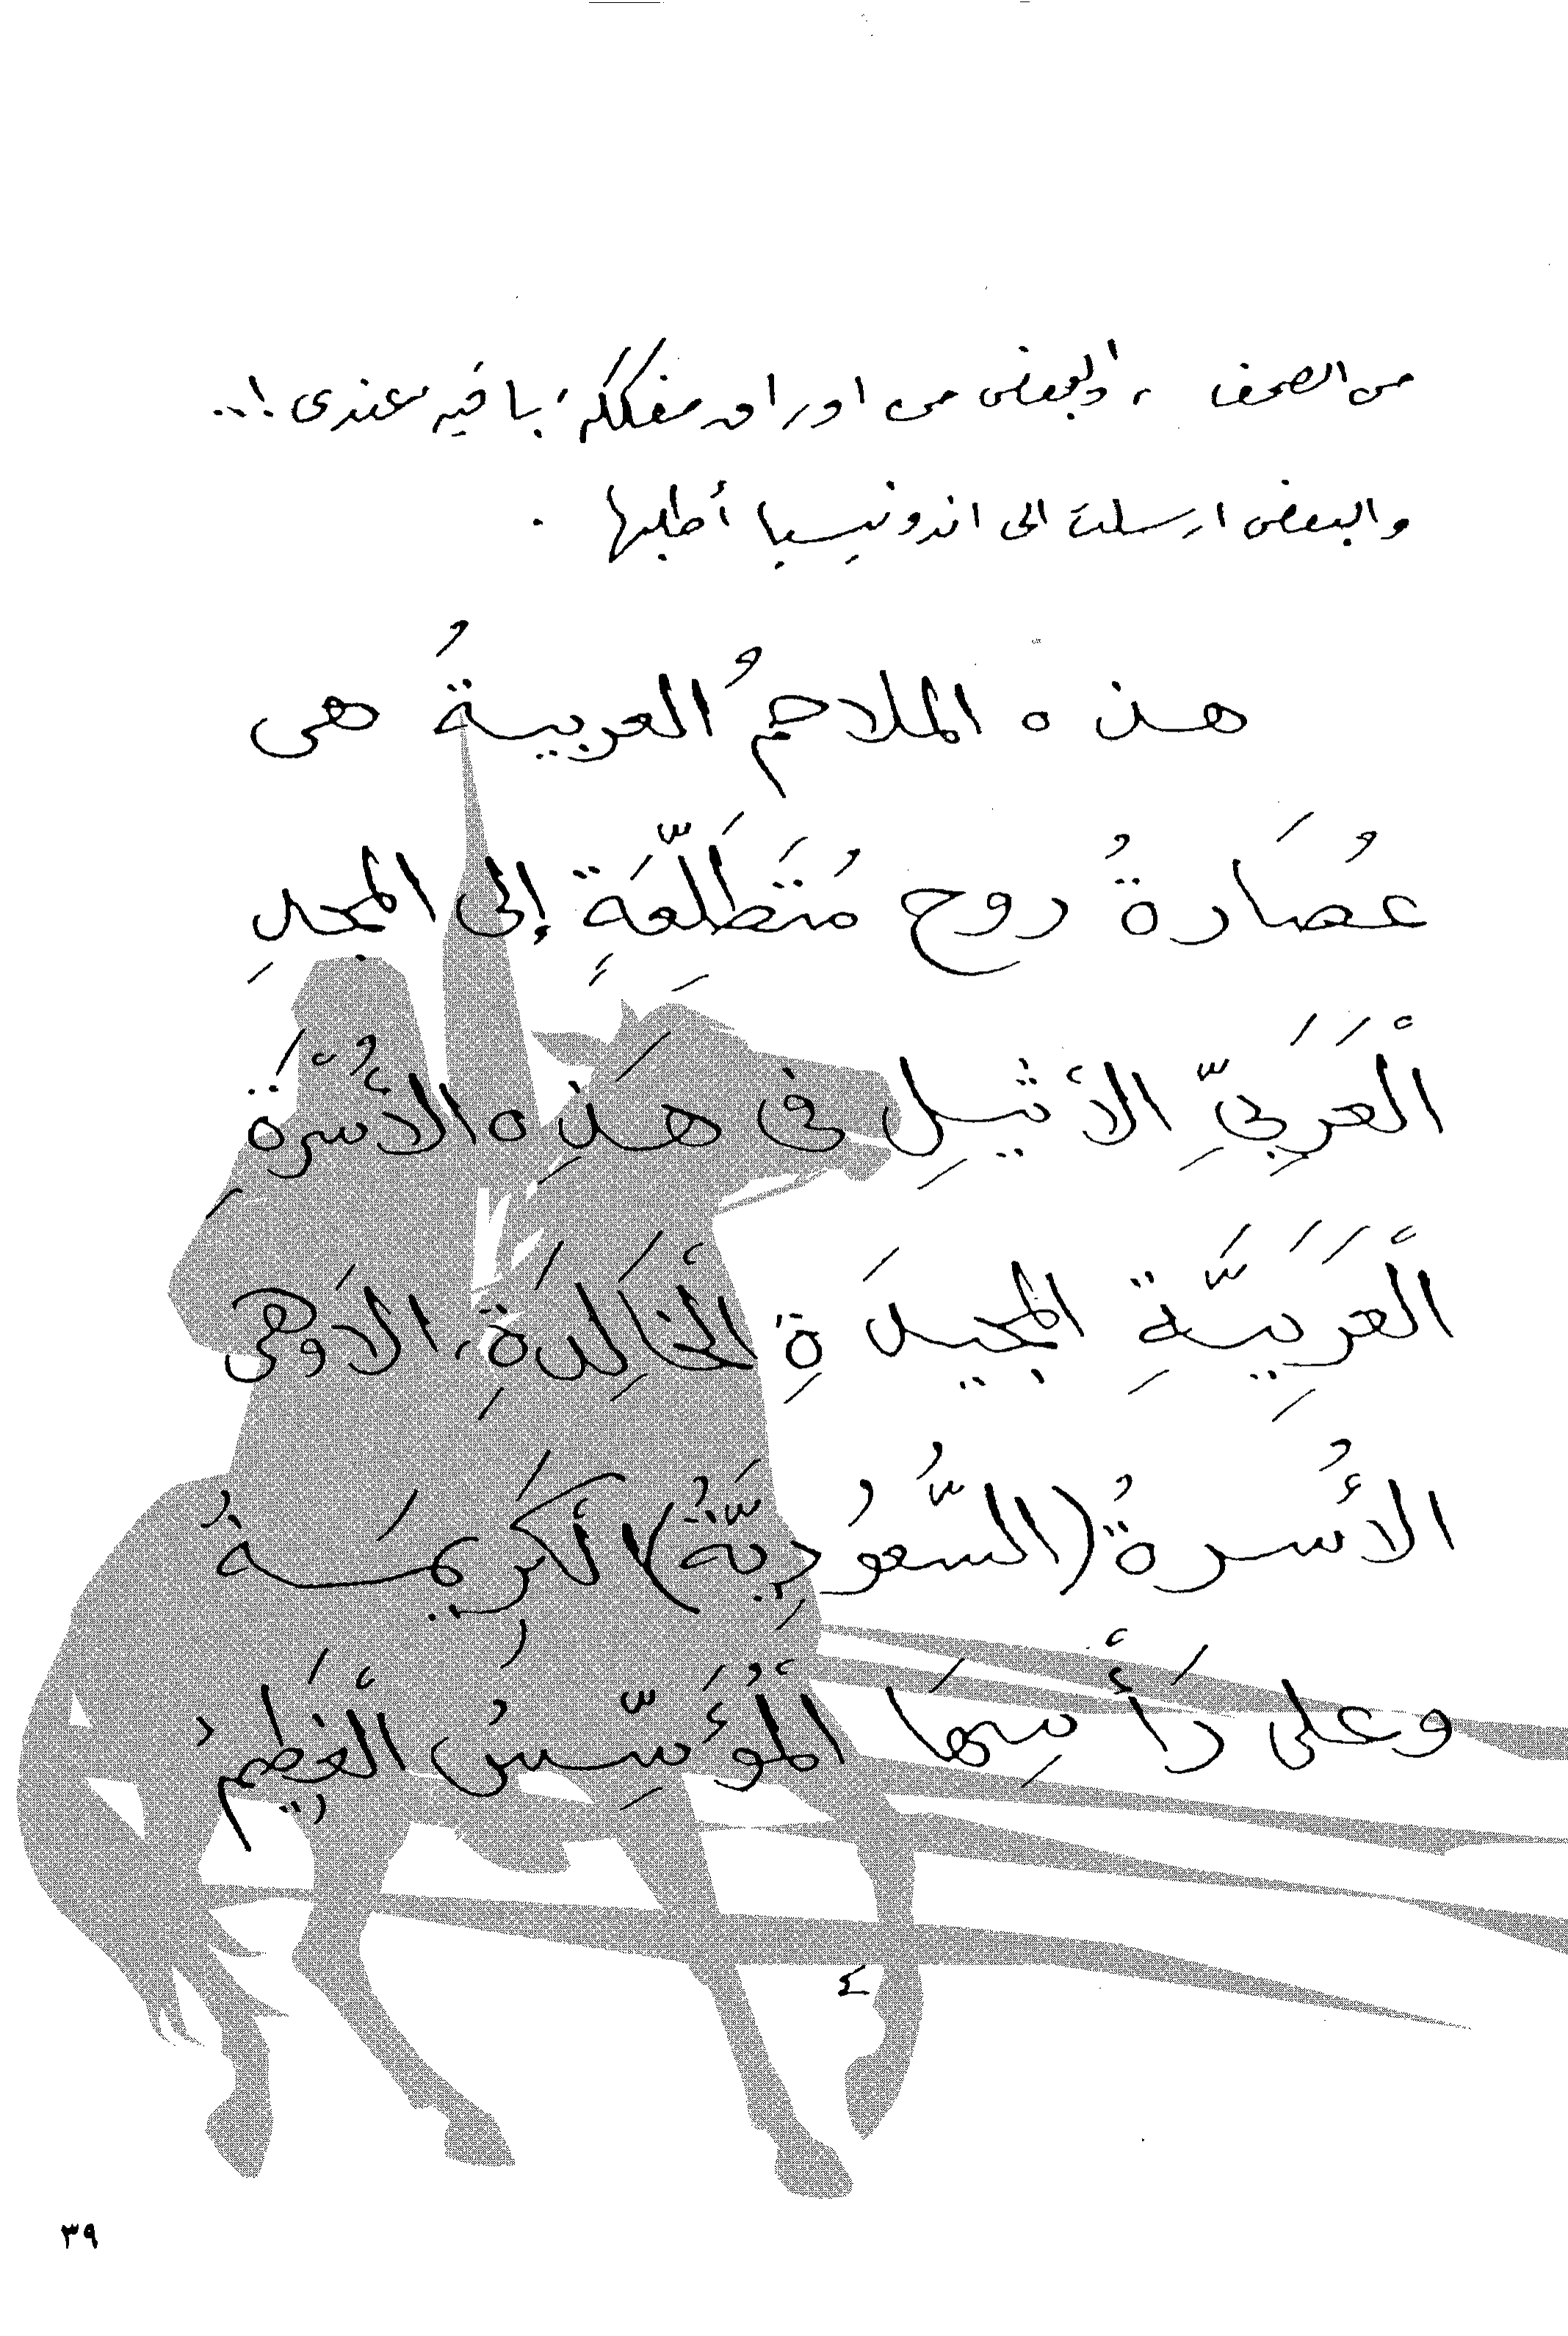 من الصحف ، والبعض من اوراق مفككة باقية عندى !..
والبعض ارسلت الى اندونيسيا أطلبها .
هذه الملاحمُ العربيةُ هى
عُصَارةُ روح مُتَطَلِّعَةٍ إلى المجدِ
الْعَرَبِىِّ الأثيلِ فى هَذِه الأُسْرَةِ
الْعَرَبِيَّةِ المجيدَةِ الْخَالِدَةِ، الَا وهى
الأُسرةُ (السُّعُودِيَّةُ) الْكَرِيمَةُ
وعلى رَأْسِهَا الْمُؤَسِّسُ الْعَظِيمُ
٤
٣٩